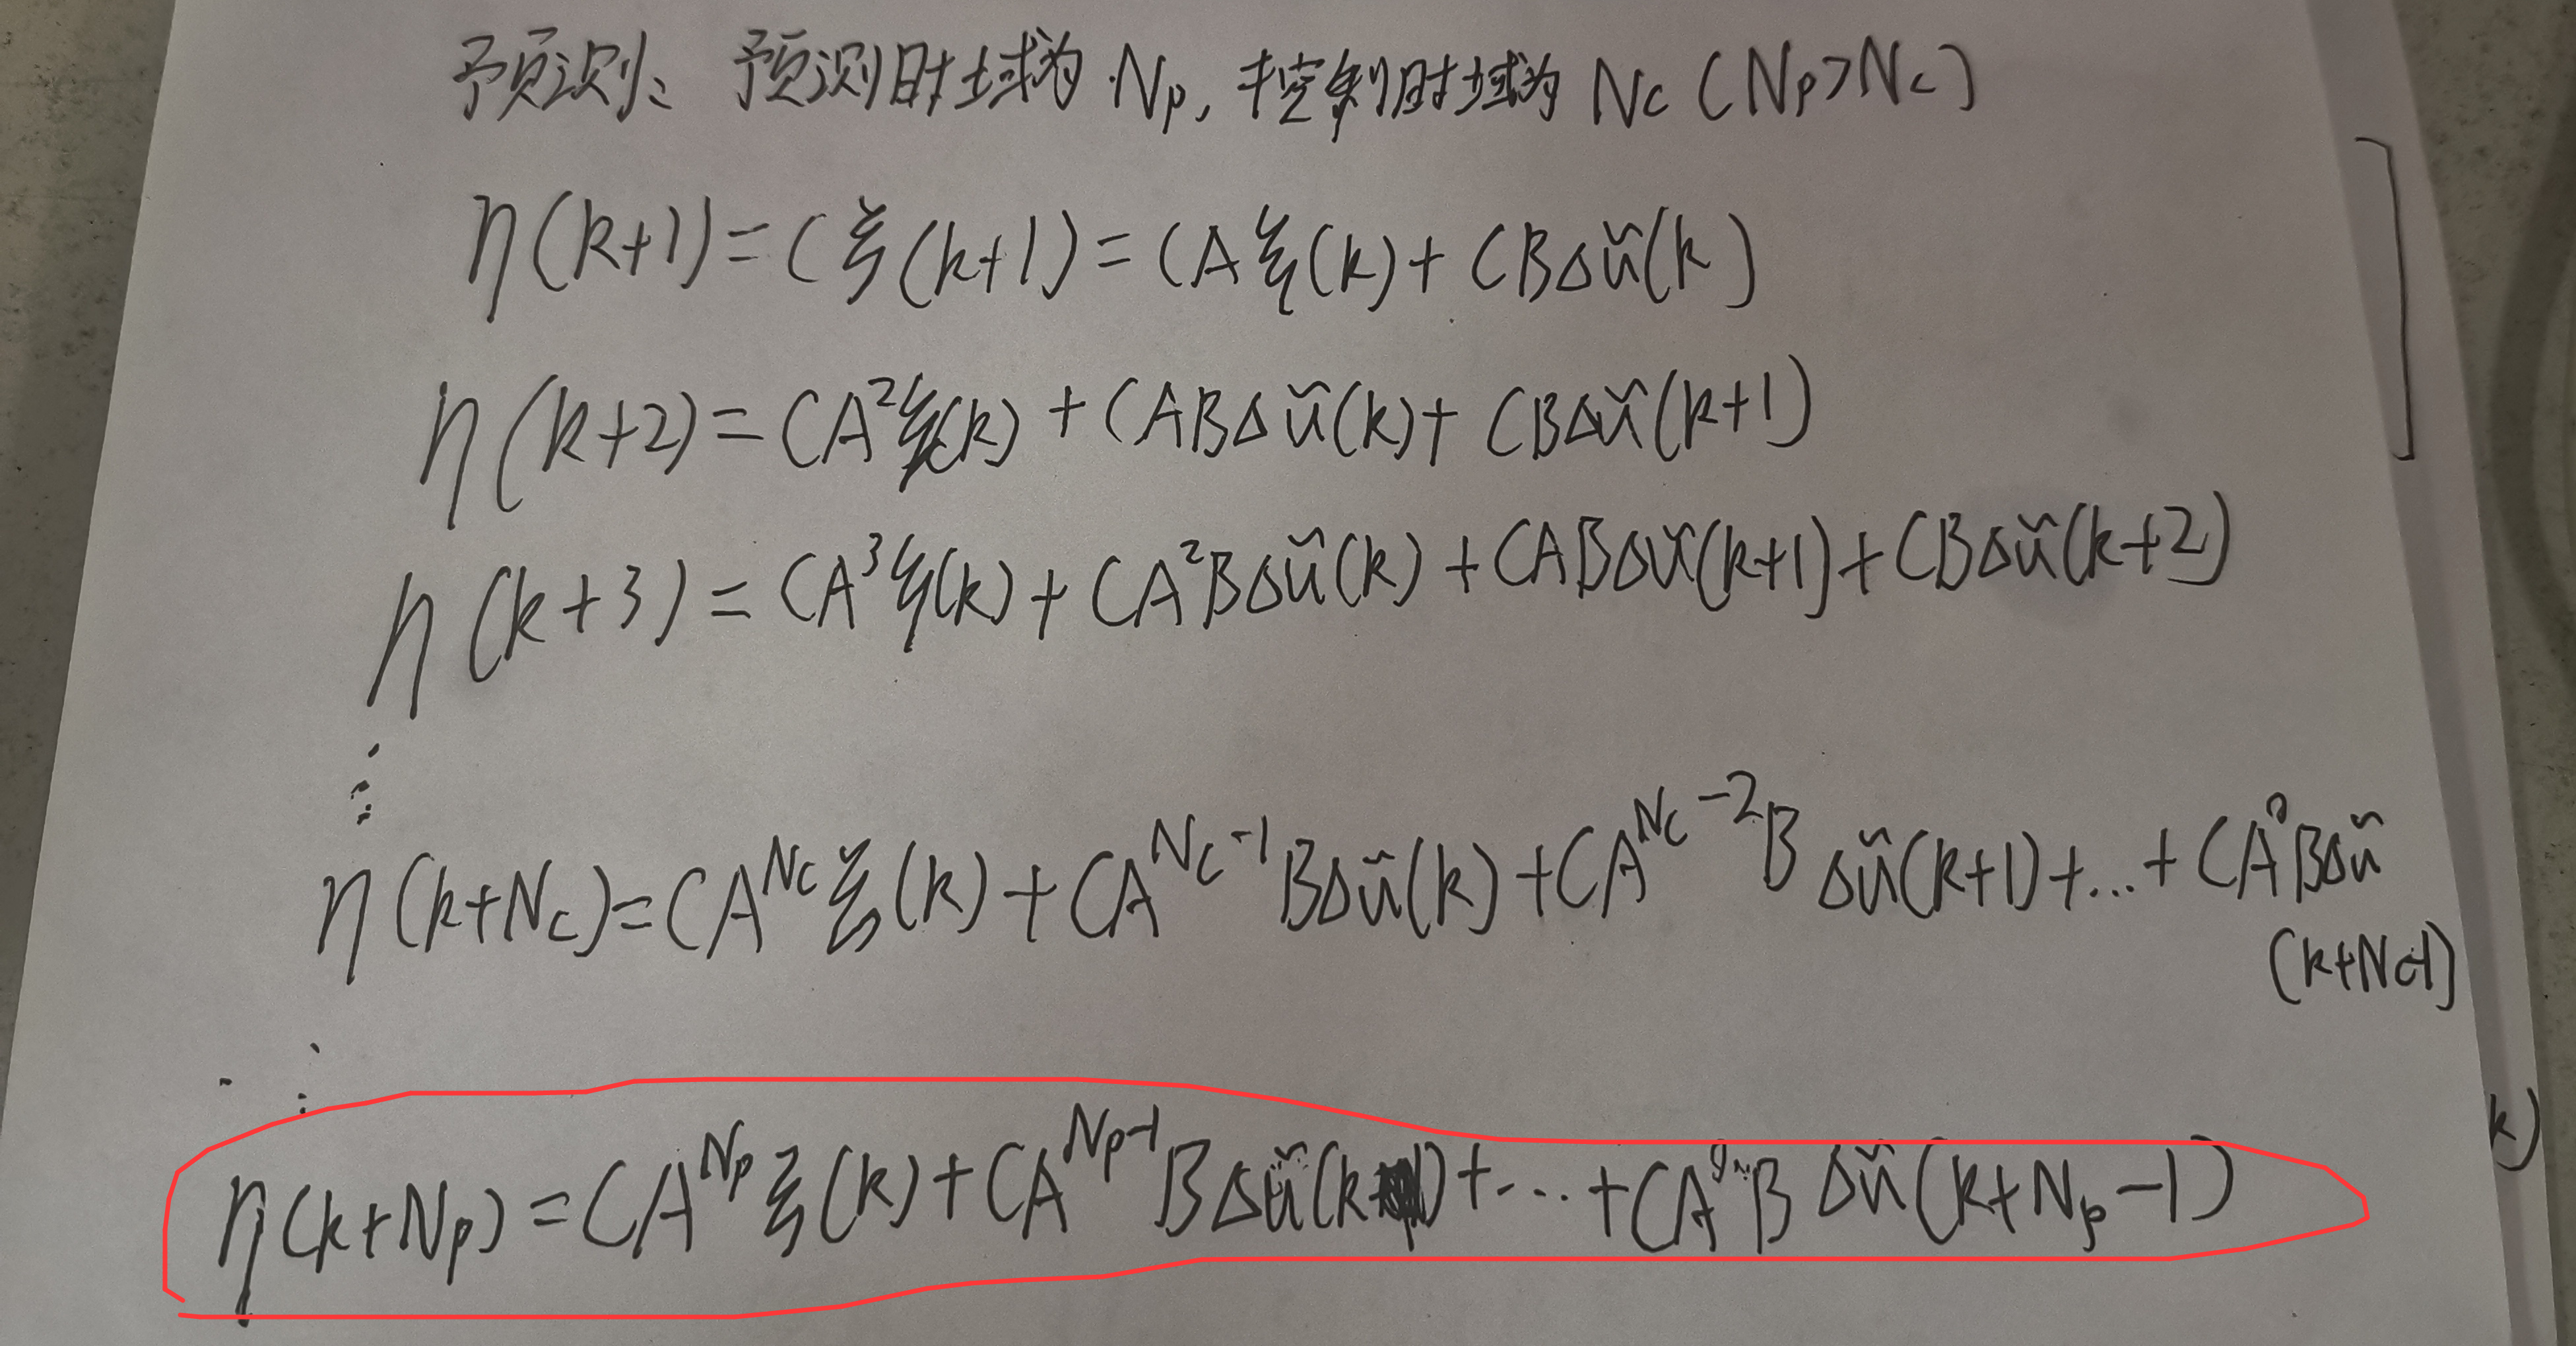 预测、预测时域为 Np, 控制时域为 Nc (Np>Nc)
η(k+1)=Cξ(k+1)=CAξ(k)+CBΔũ(k)
η(k+2)=CA²ξ(k)+CABΔũ(k)+CBΔũ(k+1)
η(k+3)=CA³ξ(k)+CA²BΔũ(k)+CABΔũ(k+1)+CBΔũ(k+2)
⋮
η(k+Nc)=CA^{Nc}ξ(k)+CA^{Nc-1}BΔũ(k)+CA^{Nc-2}BΔũ(k+1)+...+CA⁰BΔũ
(k+Nc-1)
⋮
k)
η(k+Np)=CA^{Np}ξ(k)+CA^{Np-1}BΔũ(k)+...+CA⁰BΔũ(k+Np-1)